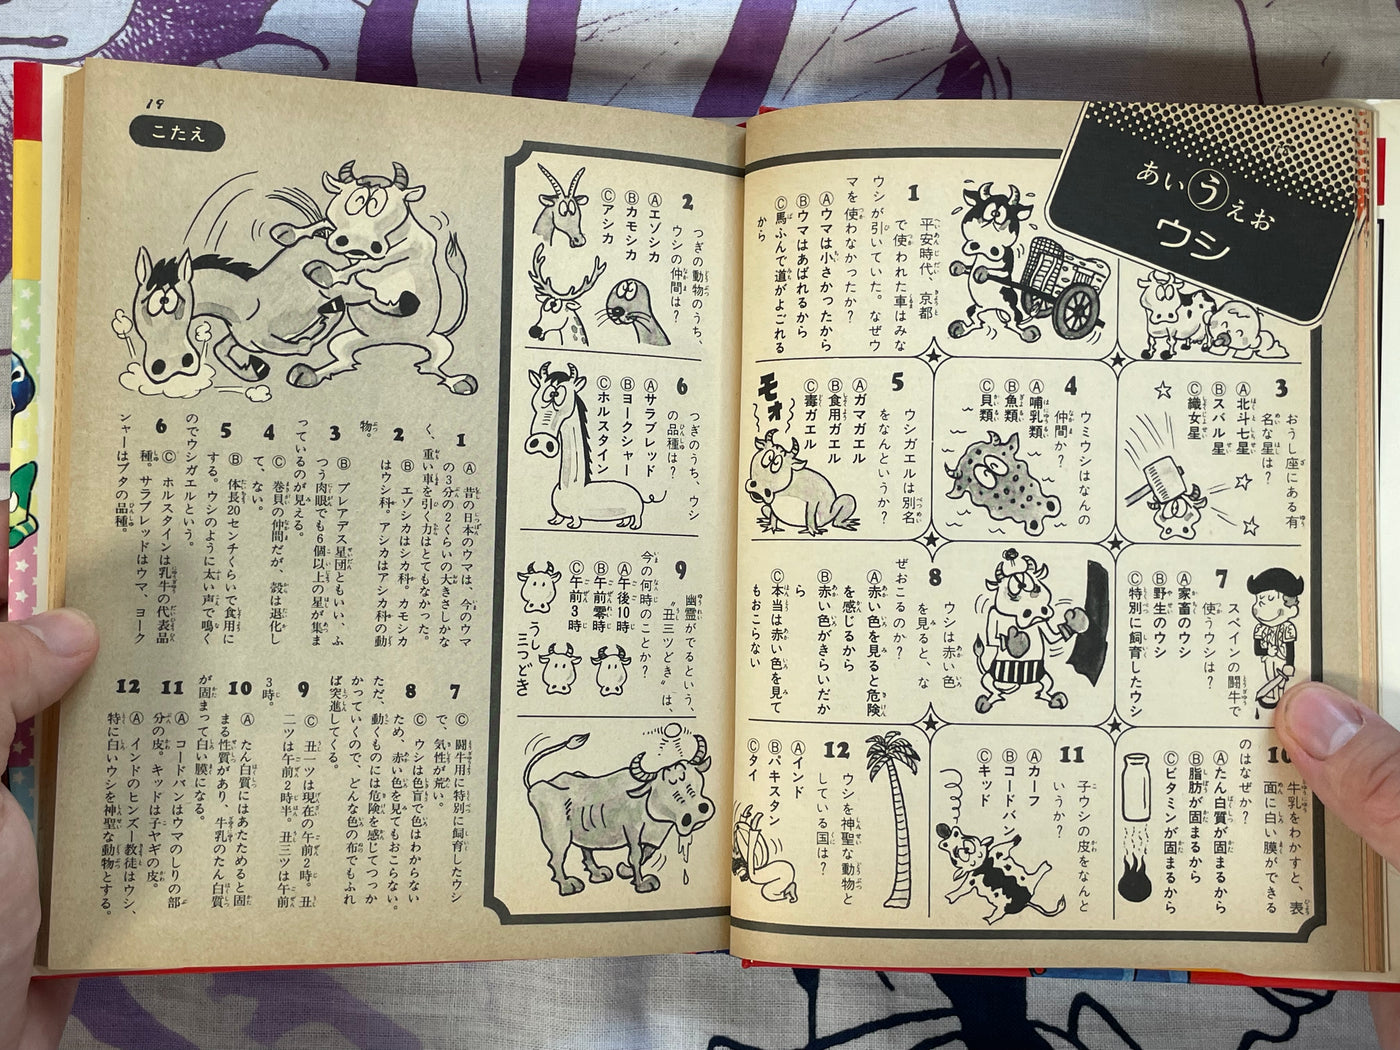 あいうえお
ウシ
1
平安時代、京都
で使われた車はみな
ウシが引いていた。なぜウ
マを使わなかったか？
Ⓐウマは小さかったから
Ⓑウマはあばれるから
Ⓒ馬ふんで道がよごれる
から
2
つぎの動物のうち、
ウシの仲間は？
Ⓐエゾシカ
Ⓑカモシカ
Ⓒアシカ
3
おうし座にある有
名な星は？
Ⓐ北斗七星
Ⓑスバル星
Ⓒ織女星
4
ウミウシはなんの
仲間か？
Ⓐ哺乳類
Ⓑ魚類
Ⓒ貝類
5
ウシガエルは別名
をなんというか？
Ⓐガマガエル
Ⓑ食用ガエル
Ⓒ毒ガエル
モオ
6
つぎのうち、ウシ
の品種は？
Ⓐサラブレッド
Ⓑヨークシャー
Ⓒホルスタイン
7
スペインの闘牛で
使うウシは？
Ⓐ家畜のウシ
Ⓑ野生のウシ
Ⓒ特別に飼育したウシ
8
ウシは赤い色
を見ると、な
ぜおこるのか？
Ⓐ赤い色を見ると危険
を感じるから
Ⓑ赤い色がきらいだか
ら
Ⓒ本当は赤い色を見て
もおこらない
9
幽霊がでるという、
〝丑三つどき〟は、
今の何時のことか？
Ⓐ午後10時
Ⓑ午前零時
Ⓒ午前3時
うし
三つどき
10
牛乳をわかすと、表
面に白い膜ができる
のはなぜか？
Ⓐたん白質が固まるから
Ⓑ脂肪が固まるから
Ⓒビタミンが固まるから
11
子ウシの皮をなんと
いうか？
Ⓐカーフ
Ⓑコードバン
Ⓒキッド
12
ウシを神聖な動物と
している国は？
Ⓐインド
Ⓑパキスタン
Ⓒタイ
19
こたえ
1
Ⓐ 昔の日本のウマは、今のウマ
の3分の2くらいの大きさしかな
く、重い車を引く力はとてもなかった。
2
Ⓑ エゾシカはシカ科。カモシカ
はウシ科。アシカはアシカ科の動
物。
3
Ⓑ プレアデス星団ともいい、ふ
つう肉眼でも6個以上の星が集ま
っているのが見える。
4
Ⓒ 巻貝の仲間だが、殻は退化し
て、ない。
5
Ⓑ 体長20センチくらいで食用に
する。ウシのように太い声で鳴く
のでウシガエルという。
6
Ⓒ ホルスタインは乳牛の代表品
種。サラブレッドはウマ、ヨーク
シャーはブタの品種。
7
Ⓒ 闘牛用に特別に飼育したウシ
で、気性が荒い。
8
Ⓒ ウシは色盲で色はわからない
ため、赤い色を見てもおこらない。
ただ、動くものには危険を感じてつっか
かっていくので、どんな色の布でもふれ
ば突進してくる。
9
Ⓒ 丑一ツは現在の午前2時。丑
二ツは午前2時半。丑三ツは午前
3時。
10
Ⓐ たん白質にはあたためると固
まる性質があり、牛乳のたん白質
が固まって白い膜になる。
11
Ⓐ コードバンはウマのしりの部
分の皮。キッドは子ヤギの皮。
12
Ⓐ インドのヒンズー教徒はウシ、
特に白いウシを神聖な動物とする。